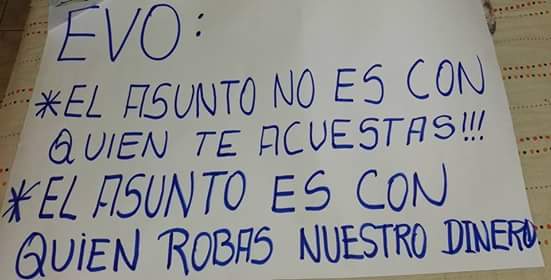 EVO:
*EL ASUNTO NO ES CON
QUIEN TE ACUESTAS!!!
*EL ASUNTO ES CON
QUIEN ROBAS NUESTRO DINERO